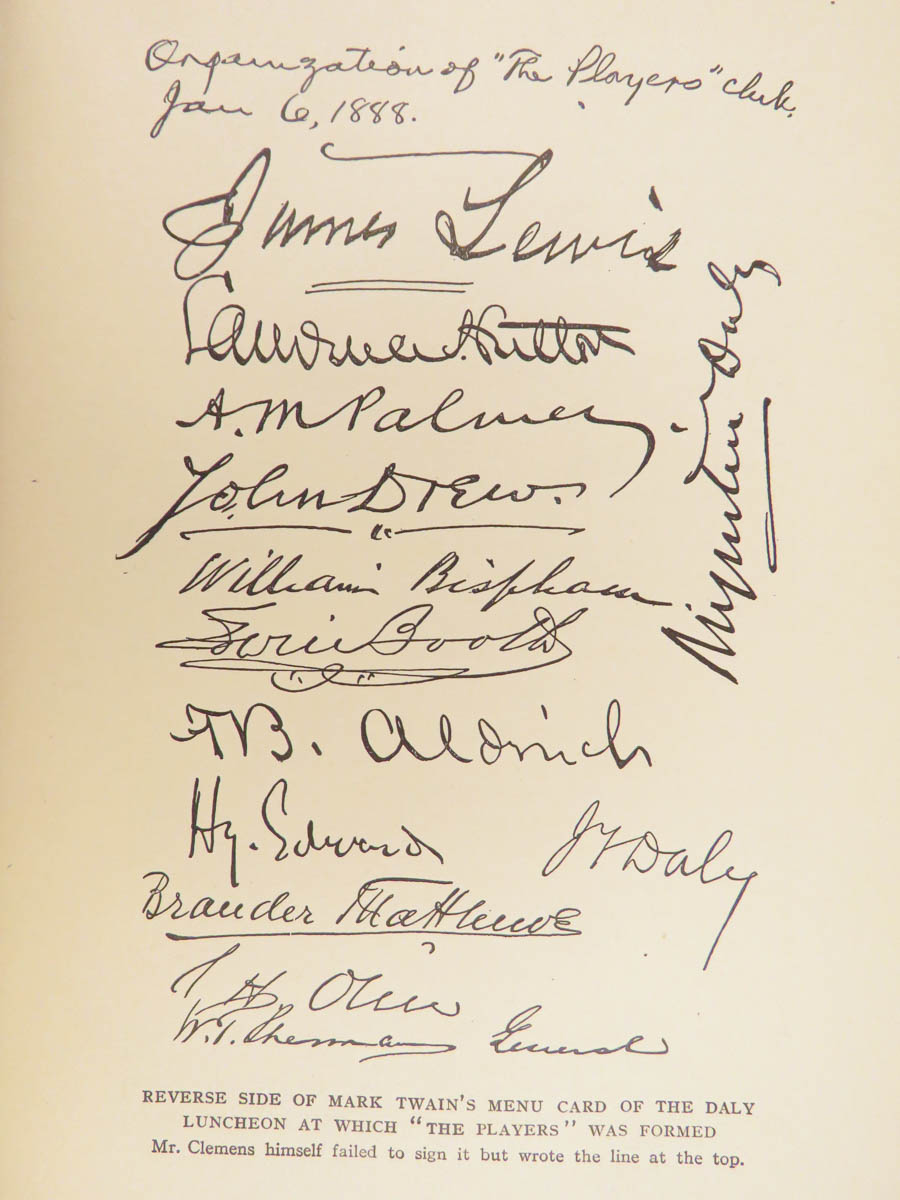 Organization of "The Players" club,
Jan 6, 1888.
James Lewis
Laurence Hutton
A. M Palmer
John Drew.
William Bispham
Augustin Daly
Edwin Booth
T B. Aldrich
Hy. Edwards
J F Daly
Brander Matthews
W. T. Sherman General
REVERSE SIDE OF MARK TWAIN'S MENU CARD OF THE DALY
LUNCHEON AT WHICH "THE PLAYERS" WAS FORMED
Mr. Clemens himself failed to sign it but wrote the line at the top.